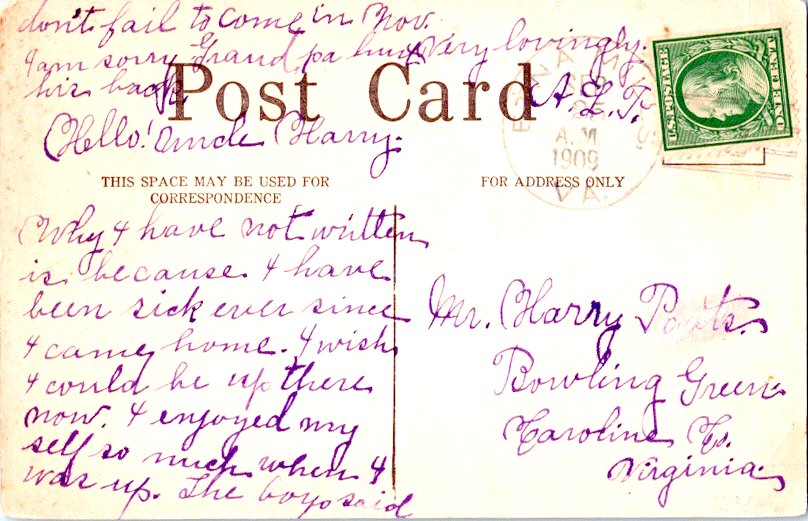 don't fail to come in Nov.
I am sorry Grandpa hurt Very lovingly.
his back. A. L. T.
Post Card
Hello! Uncle Harry.
THIS SPACE MAY BE USED FOR
CORRESPONDENCE
FOR ADDRESS ONLY
A.M.
1909
VA.
U.S. POSTAGE
Why I have not written
is because I have
been sick ever since
I came home. I wish
I could be up there
now. I enjoyed my
self so much when I
was up. The boys said
Mr. Harry Poats.
Bowling Green
Caroline Co.
Virginia.